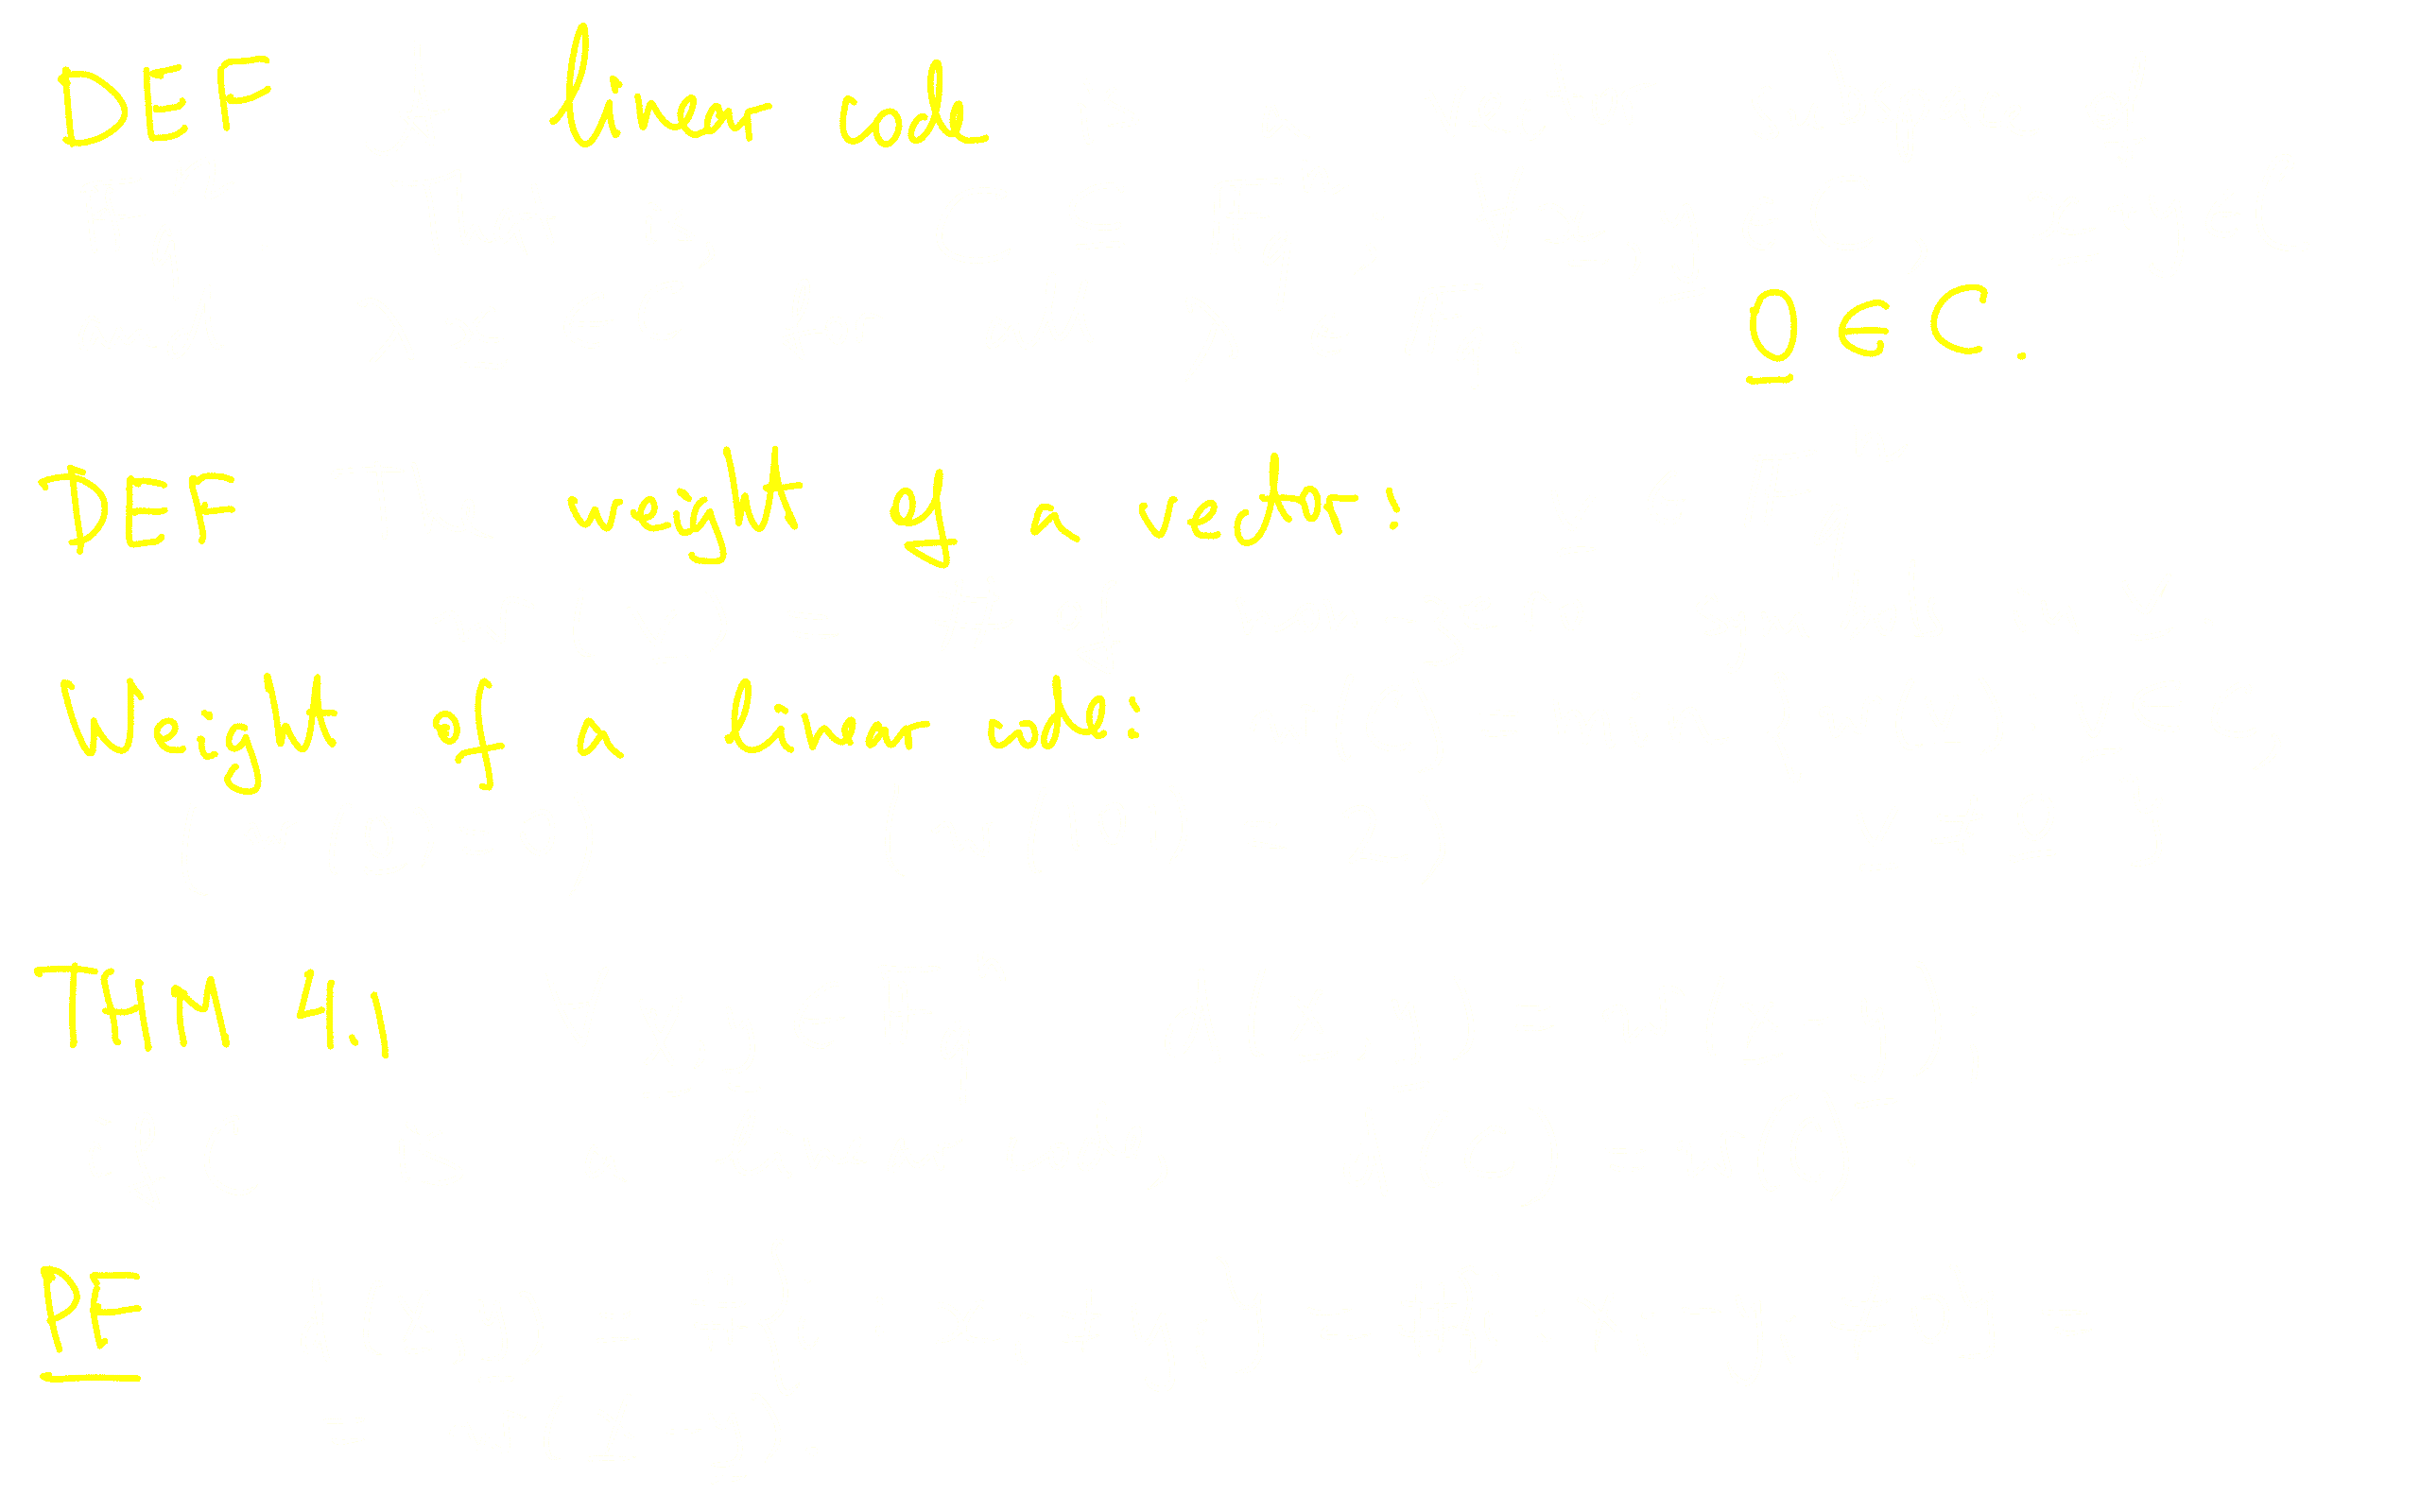 DEF linear code
0 ∈ C.
DEF weight of a vector:
Weight of a linear code:
THM 4.1
PF